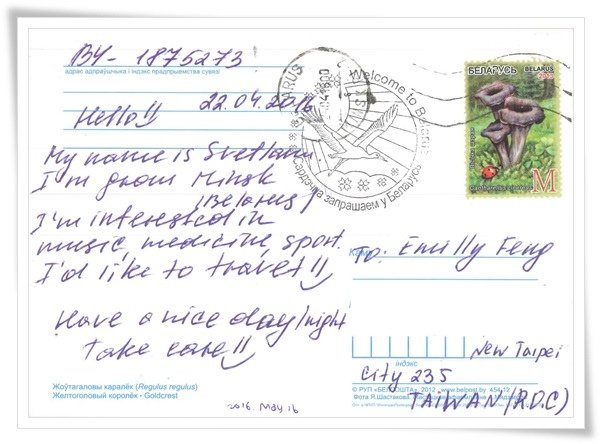 BY - 1875273
адрас адпраўшчыка і індэкс прадпрыемства сувязі
22.04.2016
Hello!!
My name is Svetlana
I'm from Minsk
(Belarus)
I'm interested in
music, medicine, sport.
I'd like to travel!!
Have a nice day/night
Take care!!
Жоўтагаловы каралёк (Regulus regulus)
Желтоголовый королёк - Goldcrest
2016. May.16
Welcome to Belarus
Сардэчна запрашаем у Беларусь
БЕЛАРУСЬ BELARUS
2013
M
Каму
To: Emilly Feng
індэкс
New Taipei
City 235
TAIWAN (R.O.C)
© РУП «БЕЛПОШТА», 2012 www.belpost.by 454.12
Фота Я.Шастакова.